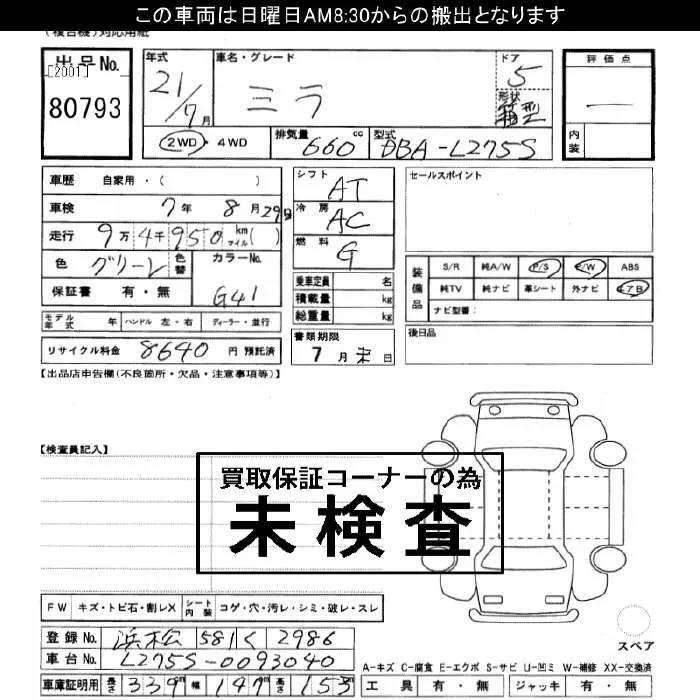 この車両は日曜日AM8:30からの搬出となります
(複合機)対応用紙
出品No.
[2001]
80793
年式
21/7月
車名・グレード
ミラ
ドア
5
形状
箱型
2WD・4WD
排気量
660cc
型式
DBA-L275S
評価点
内装
車歴 自家用・( )
車検 7年 8月29日
走行 9万4千950km マイル( )
色 グリーン 色替 カラーNo. G41
保証書 有・無
モデル年式 年 ハンドル 左・右 ディーラー・並行
リサイクル料金 8640円 預託済
シフト AT
冷房 AC
燃料 G
乗車定員 名
積載量 kg
総重量 kg
書類期限
7月末日
セールスポイント
装備品
S/R 純A/W P/S P/W ABS
純TV 純ナビ 革シート 外ナビ エアB
ナビ型番:
後日品
【出品店申告欄(不良箇所・欠品・注意事項等)】
【検査員記入】
買取保証コーナーの為
未検査
FW キズ・トビ石・割レX シート内装 コゲ・穴・汚レ・シミ・破レ・スレ
登録No. 浜松 581 く 2986
車台No. L275S-0093040
車庫証明用 長さ 339 幅 147 高さ 153
スペア
A-キズ C-腐食 E-エクボ S-サビ U-凹ミ W-補修 XX-交換済
工具 有・無 ジャッキ 有・無